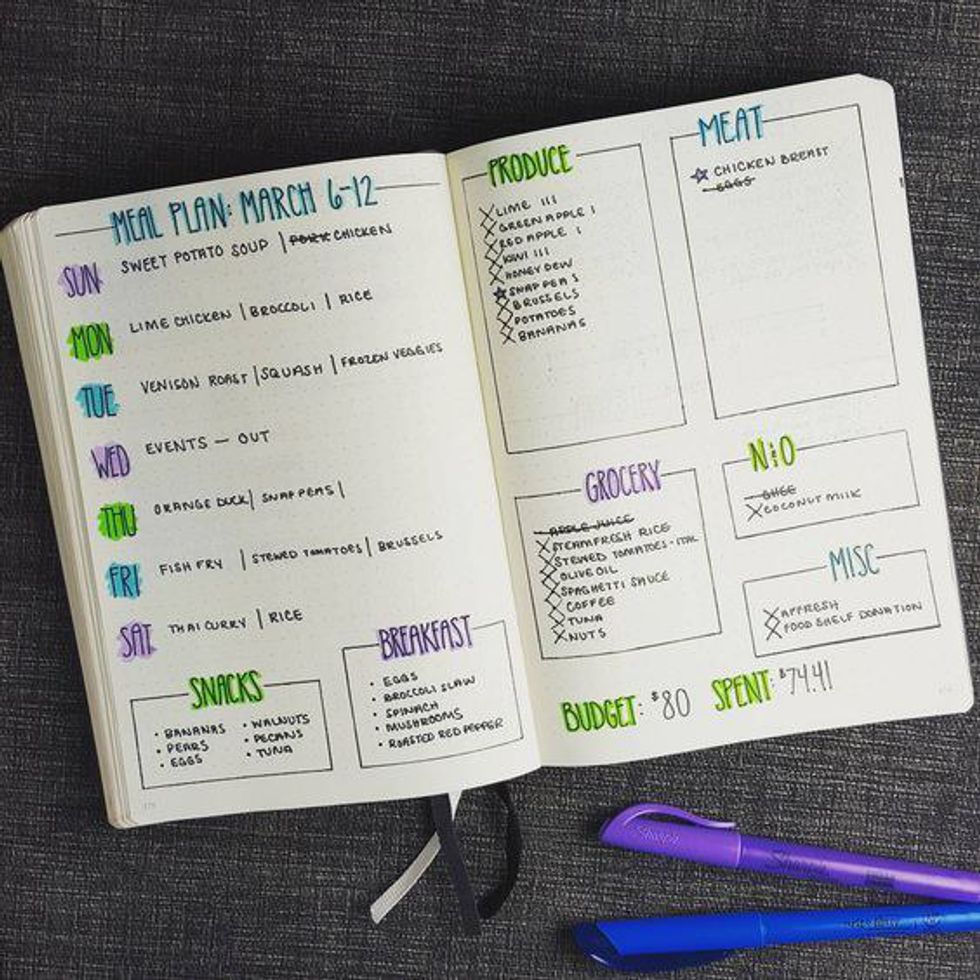 MEAL PLAN: MARCH 6-12
SUN SWEET POTATO SOUP | PORK CHICKEN
MON LIME CHICKEN | BROCCOLI | RICE
TUE VENISON ROAST | SQUASH | FROZEN VEGGIES
WED EVENTS — OUT
THU ORANGE DUCK | SNAP PEAS |
FRI FISH FRY | STEWED TOMATOES | BRUSSELS
SAT THAI CURRY | RICE
SNACKS
• BANANAS • WALNUTS
• PEARS • PECANS
• EGGS • TUNA
BREAKFAST
• EGGS
• BROCCOLI SLAW
• SPINACH
• MUSHROOMS
• ROASTED RED PEPPER
PRODUCE
LIME III
GREEN APPLE I
RED APPLE I
KIWI III
HONEYDEW
SNAP PEAS
BRUSSELS
POTATOES
BANANAS
MEAT
CHICKEN BREAST
EGGS
GROCERY
APPLE JUICE
STEAMFRESH RICE
STEWED TOMATOES-ITAL
OLIVE OIL
SPAGHETTI SAUCE
COFFEE
TUNA
NUTS
N&O
GHEE
COCONUT MILK
MISC
AFFRESH
FOOD SHELF DONATION
BUDGET: $80 SPENT: $74.41
Sharpie